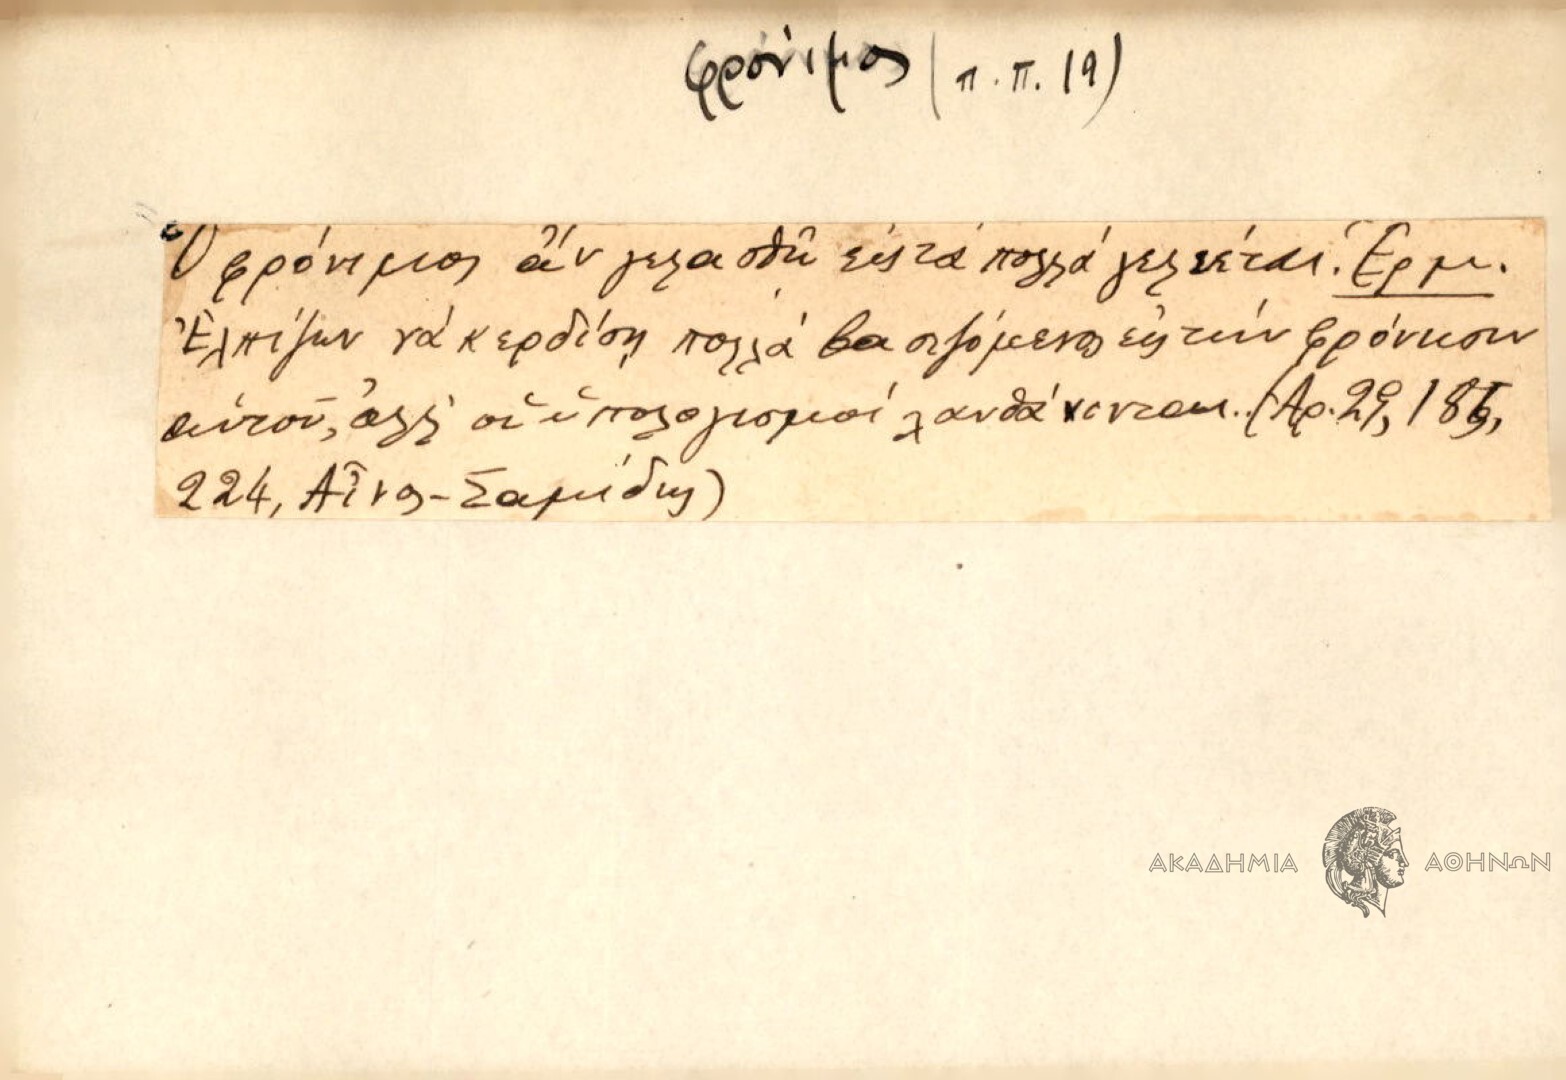 φρόνιμος (π.π. 19)
Ὁ φρόνιμος ἄν γελασθῇ εἰς τά πολλά γελιέται. Ἑρμ.
Ἐλπίζων νά κερδίσῃ πολλά βασιζόμενος εἰς τήν φρόνησιν
αὑτοῦ, ἀλλ' οἱ ὑπολογισμοί λανθάνονται. (Αρ. 29,
224, Αἶνος - Σαμίδης)
ΑΚΑΔΗΜΙΑ ΑΘΗΝΩΝ